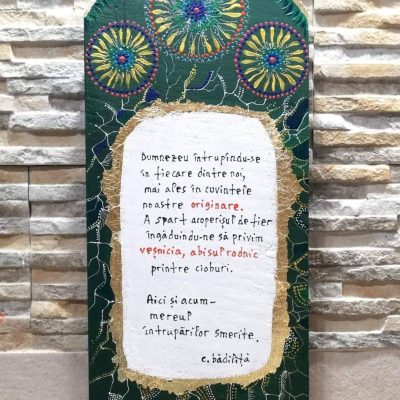 Dumnezeu întrupîndu-se
în fiecare dintre noi,
mai ales în cuvintele
noastre originare.
A spart acoperișul de fier
îngăduindu-ne să privim
veșnicia, abisul rodnic
printre cioburi.
Aici și acum-
mereul
întrupărilor smerite.
c. bădiliță